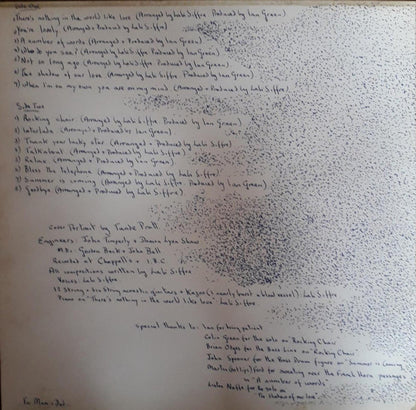 Side One
1) There's nothing in the world like love (Arranged by Labi Siffre Produced by Ian Green)
2) You're lovely (Arranged + Produced by Labi Siffre)
3) A number of words (Arranged + Produced by Ian Green)
4) What do you see? (Arranged + Produced by Labi Siffre)
5) Not so long ago (Arranged by Labi Siffre Produced by Ian Green)
6) The shadow of our love (Arranged by Labi Siffre Produced by Ian Green)
7) When I'm on my own you are on my mind (Arranged + Produced by Labi Siffre)
Side Two
1) Rocking chair (Arranged by Labi Siffre Produced by Ian Green)
2) Interlude (Arranged + Produced by Ian Green)
3) Thank your lucky star (Arranged + Produced by Labi Siffre)
4) Talkabout (Arranged + Produced by Labi Siffre)
5) Relax (Arranged + Produced by Ian Green)
6) Bless the telephone (Arranged + Produced by Labi Siffre)
7) Summer is coming (Arranged by Labi Siffre Produced by Ian Green)
8) Goodbye (Arranged + Produced by Labi Siffre)
Cover Portrait by
Engineers: John Timperly + Dennis Lynn Shaw
+ John Bell
Recorded at Chappell's + I.B.C
All compositions written by Labi Siffre
Voices Labi Siffre
12 String + six string acoustic guitars + Kazoo (I nearly burst a blood vessel) Labi Siffre
Piano on "There's nothing in the world like love" Labi Siffre
Special thanks to: Ian for being patient
Colin Green for the solo on Rocking Chair
Brian Odges for the Bass Line on "Rocking Chair"
John Spooner for the Bass Drum figure on "Summer is Coming"
Martin (hot lips) Ford for sweating over the French Horn passages
in "A number of words"
for the solo on
"The shadow of our love".
For Mum + Dad.